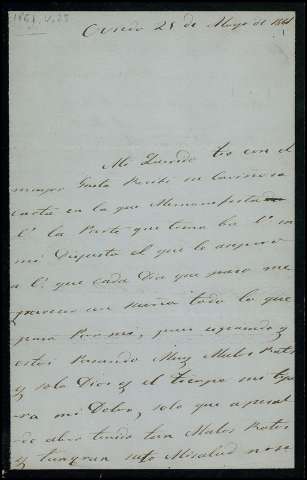 1861, V, 25
Oviedo 25 de Mayo de 1861
Mi Querido tio con el
mayor Gusto Recibi su cariñosa
carta en la que Me manifesta
V. la Parte que toma V. en
mi Disgusto el que le aseguro
a V. que cada Dia que pasa me
parece un sueño todo lo que
pasa Por mi, pues
estoi Pasando Muy Malos Ratos
y solo Dios y el tiempo
mi Dolor, solo que a pesar
de aber tenido tan Malos Ratos
y Misalud no se